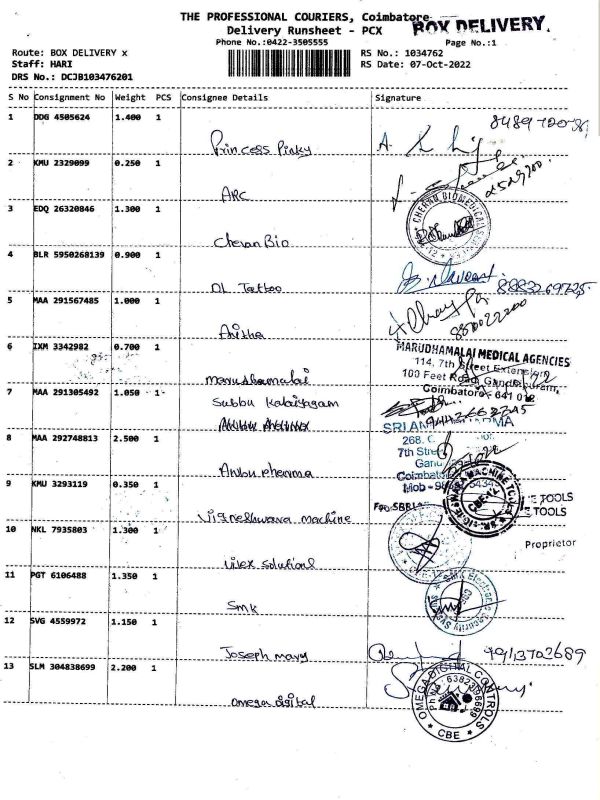 THE PROFESSIONAL COURIERS, Coimbatore
BOX DELIVERY.
Delivery Runsheet - PCX
Phone No.:0422-3505555
Page No.:1
Route: BOX DELIVERY x
RS No.: 1034762
Staff: HARI
RS Date: 07-Oct-2022
DRS No.: DCJB103476201
S No Consignment No Weight PCS Consignee Details Signature
1 DDG 4505624 1.400 1
Princess Pinky
2 KMU 2329099 0.250 1
ARC
3 EDQ 26320846 1.300 1
CHERAN BIOMEDICAL
Cheran Bio
4 BLR 5950268139 0.900 1
DL Tattoo 8883269725
5 MAA 291567485 1.000 1
Anitha
6 IXM 3342982 0.700 1
MARUDHAMALAI MEDICAL AGENCIES
114, 7th Street Extension
100 Feet Road, Gandhipuram,
Coimbatore - 641 012
Marudhamalai
7 MAA 291305492 1.050 1
Subbu Kalaiyagam
8 MAA 292748813 2.500 1
7th Street
Anbu pharma
9 KMU 3293119 0.350 1
MACHINE TOOLS
CBE-12
TOOLS
TOOLS
Vigneshwara machine
10 NKL 7935803 1.300 1
Proprietor
Vilex Solutions
11 PGT 6106488 1.350 1
SMK Electronic Security
SMK
12 SVG 4559972 1.150 1
Joseph mary 9913703689
13 SLM 304838699 2.200 1
OMEGA DIGITAL CONTROLS
CBE
omega digital